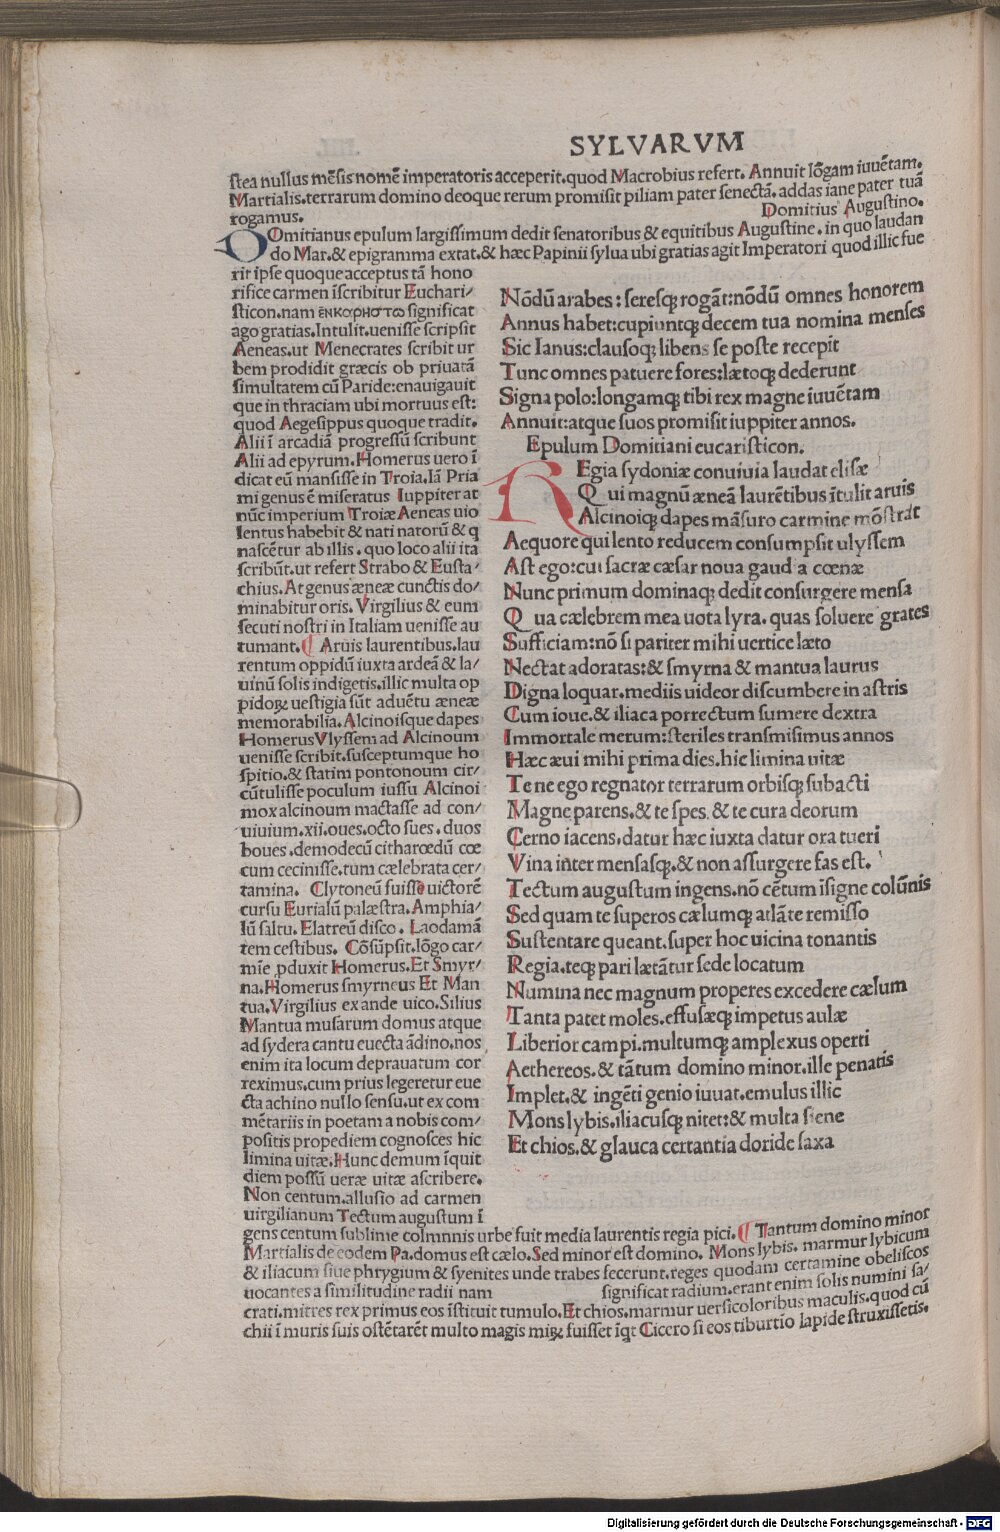 SYLVARVM
stea nullus mēsis nomē imperatoris acceperit.quod Macrobius refert. Annuit lōgam iuuētam.
Martialis.terrarum domino deoque rerum promisit piliam pater senectā.addas iane pater tuā
rogamus.
Domitius Augustino.
DOmitianus epulum largissimum dedit senatoribus & equitibus Augustine. in quo laudan
do Mar.& epigramma extat.& hæc Papinii sylua ubi gratias agit Imperatori quod illic fue
rit ipse quoque acceptus tā hono
rifice carmen īscribitur Euchari/
sticon.nam ēνκαρηστω significat
ago gratias.Intulit.uenisse scripsit
Aeneas.ut Menecrates scribit ur
bem prodidit græcis ob priuatā
simultatem cū Paride:enauigauit
que in thraciam ubi mortuus est:
quod Aegesippus quoque tradit.
Alii ī arcadiā progressū scribunt
Alii ad epyrum.Homerus uero ī
dicat eū mansisse in Troia.Iā Pria
mi genus ē miseratus Iuppiter at
nūc imperium Troiæ Aeneas uio
lentus habebit & nati natorū & q
nascētur ab illis. quo loco alii ita
scribūt.ut refert Strabo & Eusta/
chius. At genus æneæ cunctis do/
minabitur oris. Virgilius & eum
secuti nostri in Italiam uenisse au
tumant. ¶ Aruis laurentibus.lau
rentum oppidū iuxta ardeā & la/
uinū solis indigetis.illic multa op
pidoꝝ uestigia sūt aduētu æneæ
memorabilia. Alcinoisque dapes
Homerus Vlyssem ad Alcinoum
uenisse scribit.susceptumque ho
spitio.& statim pontonoum cir/
cūtulisse poculum iussu Alcinoi
mox alcinoum mactasse ad con/
uiuium.xii.oues.octo sues. duos
boues.demodecū citharœdū cœ
cum cecinisse.tum cælebrata cer/
tamina. Clytoneū fuisse uictorē
cursu Eurialū palæstra.Amphia/
lū saltu. Elatreū disco. Laodamā
tem cestibus. Cōsūpsit.lōgo car/
mīe ꝓduxit Homerus.Et Smyr/
na.Homerus smyrneus Et Man
tua.Virgilius ex ande uico.Silius
Mantua musarum domus atque
ad sydera cantu euecta ādino.nos
enim ita locum deprauatum cor
reximus.cum prius legeretur eue
cta achino nullo sensu.ut ex com
mētariis in poetam a nobis com/
positis propediem cognosces hic
limina uitæ.Hunc demum īquit
diem possū ueræ uitæ ascribere.
Non centum.allusio ad carmen
uirgilianum Tectum augustum ī
Nōdū arabes:seresqꝫ rogāt:nōdū omnes honorem
Annus habet:cupiuntqꝫ decem tua nomina menses
Sic Ianus:clausoqꝫ libens se poste recepit
Tunc omnes patuere fores:lætoqꝫ dederunt
Signa polo:longamqꝫ tibi rex magne iuuētam
Annuit:atque suos promisit iuppiter annos.
Epulum Domitiani eucaristicon.
REgia sydoniæ conuiuia laudat elisæ
Qui magnū æneā laurētibus ītulit aruis
Alcinoiqꝫ dapes māsuro carmine mōstrat
Aequore qui lento reducem consumpsit ulyssem
Ast ego:cui sacræ cæsar noua gaudia cœnæ
Nunc primum dominaqꝫ dedit consurgere mensa
Qua cælebrem mea uota lyra. quas soluere grates
Sufficiam:nō si pariter mihi uertice læto
Nectat adoratas:& smyrna & mantua laurus
Digna loquar.mediis uideor discumbere in astris
Cum ioue.& iliaca porrectum sumere dextra
Immortale merum:steriles transmisimus annos
Hæc æui mihi prima dies.hic limina uitæ
Te ne ego regnator terrarum orbisqꝫ subacti
Magne parens.& te spes.& te cura deorum
Cerno iacens.datur hæc iuxta datur ora tueri
Vina inter mensasqꝫ.& non assurgere fas est.
Tectum augustum ingens.nō cētum īsigne colūnis
Sed quam te superos cælumqꝫ atlāte remisso
Sustentare queant.super hoc uicina tonantis
Regia.teqꝫ pari lætātur sede locatum
Numina nec magnum properes excedere cælum
Tanta patet moles.effusæqꝫ impetus aulæ
Liberior campi.multumqꝫ amplexus operti
Aethereos.& tātum domino minor.ille penatis
Implet.& ingēti genio iuuat.emulus illic
Mons lybis.iliacusqꝫ nitet:& multa siene
Et chios.& glauca certantia doride saxa
gens centum sublime colmnnis urbe fuit media laurentis regia pici. ¶ Tantum domino minor
Martialis de eodem Pa.domus est cælo.Sed minor est domino. Mons lybis. marmur lybicum
& iliacum siue phrygium & syenites unde trabes fecerunt.reges quodam certamine obeliscos
uocantes a similitudine radii nam significat radium.erant enim solis numini sa/
crati.mitres rex primus eos īstituit tumulo.Et chios.marmur uersicoloribus maculis.quod cū
chii ī muris suis ostētarēt multo magis miꝝ fuisset īqt Cicero si eos tiburtio lapide struxissetis.
Digitalisierung gefördert durch die Deutsche Forschungsgemeinschaft - DFG